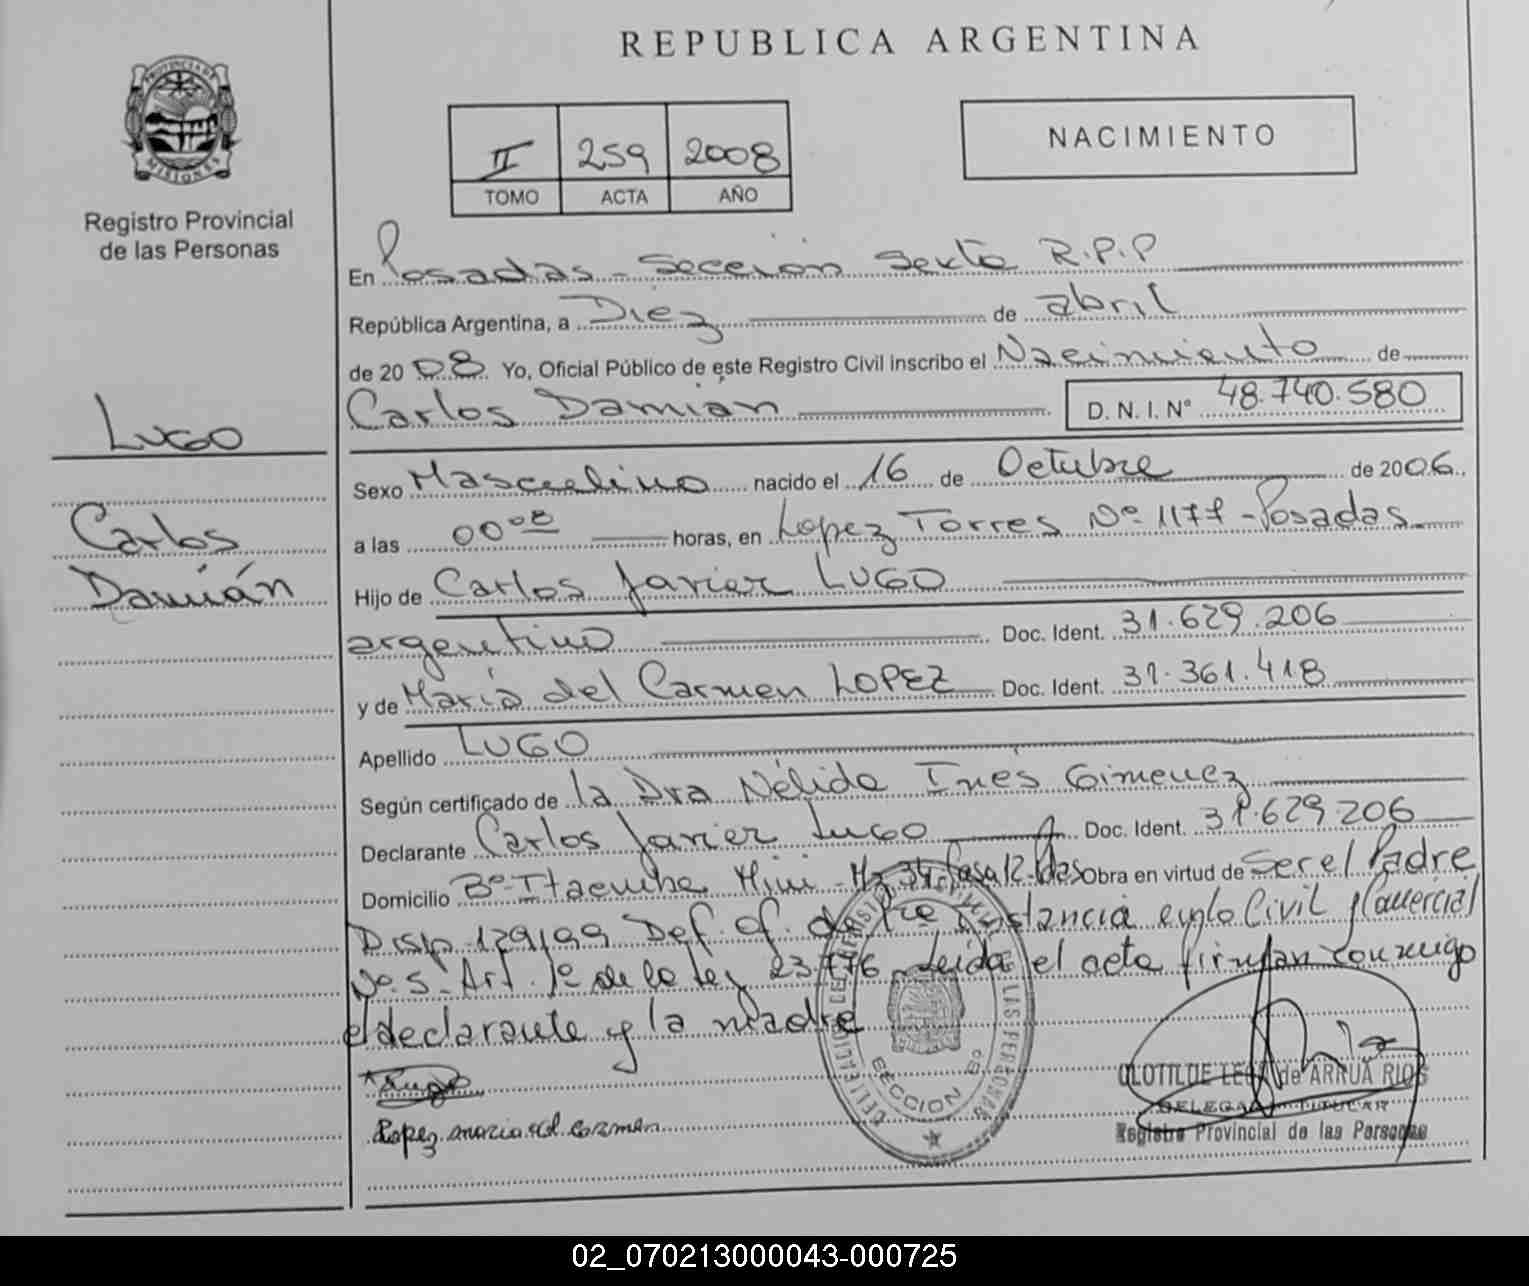 REPUBLICA ARGENTINA
PROVINCIA DE
MISIONES
Registro Provincial
de las Personas
II 259 2008
TOMO ACTA AÑO
NACIMIENTO
En Posadas - Sección Sexta R.P.P
República Argentina, a Diez de abril
de 2008 Yo, Oficial Público de este Registro Civil inscribo el Nacimiento de
Carlos Damián D. N. I. N° 48.740.580
LUGO
Carlos
Damián
Sexo Masculino nacido el 16 de Octubre de 2006
a las 00 08 horas, en Lopez Torres N° 1177 - Posadas
Hijo de Carlos Javier LUGO
argentino Doc. Ident. 31.629.206
y de María del Carmen LOPEZ Doc. Ident. 31.361.418
Apellido LUGO
Según certificado de la Dra Nélida Inés Gimenez
Declarante Carlos Javier Lugo Doc. Ident. 31.629.206
Domicilio B° Itaembe Mini - Mz 34 - Casa 12 - Pdas Obra en virtud de Ser el Padre
Disp. 129/99 Def. of. de 1ra instancia en lo Civil y Comercial
N° 5 - Art. 1° de la Ley 23.776 - Leida el acta firman conmigo
el declarante y la madre
Lugo
Lopez maria del Carmen
SECCION 6°
CLOTILDE de ARRUA RIOS
DELEGADA TITULAR
Registro Provincial de las Personas
02_070213000043-000725